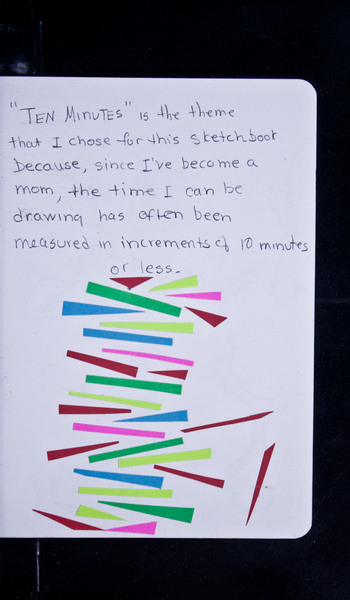 "TEN MINUTES" is the theme
that I chose for this sketchbook
because, since I've become a
mom, the time I can be
drawing has often been
measured in increments of 10 minutes
or less.